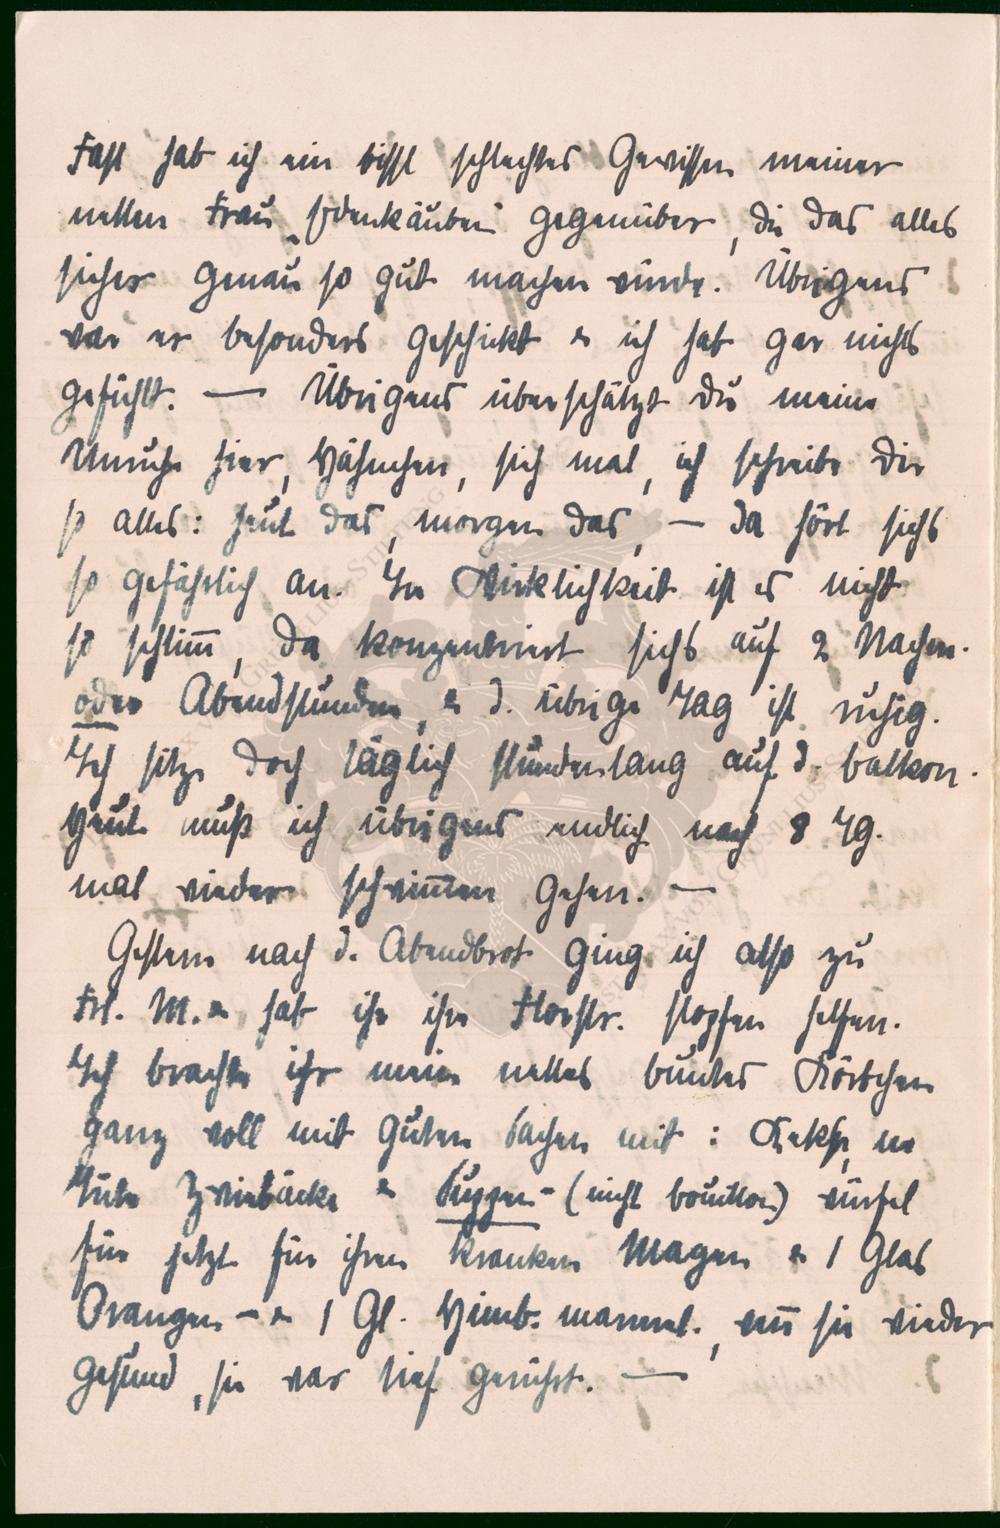 Fast hab ich ein bissl schlechtes Gewissen meiner
netten Frau gegenüber, die das alles
sicher genau so gut machen würde. Übrigens
war er besonders geschickt & ich hab gar nichts
gefühlt. — Übrigens überschätzt Du meine
Unruhe hier, Hähnchen, sieh mal, ich schreibe Dir
so alles: heut das, morgen das, — da hört sichs
so gefährlich an. In Wirklichkeit ist es nicht
so schlim̅, da konzentriert sichs auf 2 Nachm.
oder Abendstunden, & d. übrige Tag ist ruhig.
Ich sitze doch täglich stundenlang auf d. Balkon.
Heut muß ich übrigens endlich nach 8 Tg.
mal wieder schwim̅en gehen. —
Gestern nach d. Abendbrot ging ich also zu
Frl. M. & hab ihr ihre Florstr. stopfen helfen.
Ich brachte ihr mein nettes buntes Körbchen
ganz voll mit guten Sachen mit: Kekse, ne
Tüte Zwiebäcke & Suppen-(nicht Bouillon) würfel
für jetzt für ihren kranken Magen & 1 Glas
Orangen- & 1 Gl. Himb. marmel., wen̅ sie wieder
gesund, sie war tief gerührt. —